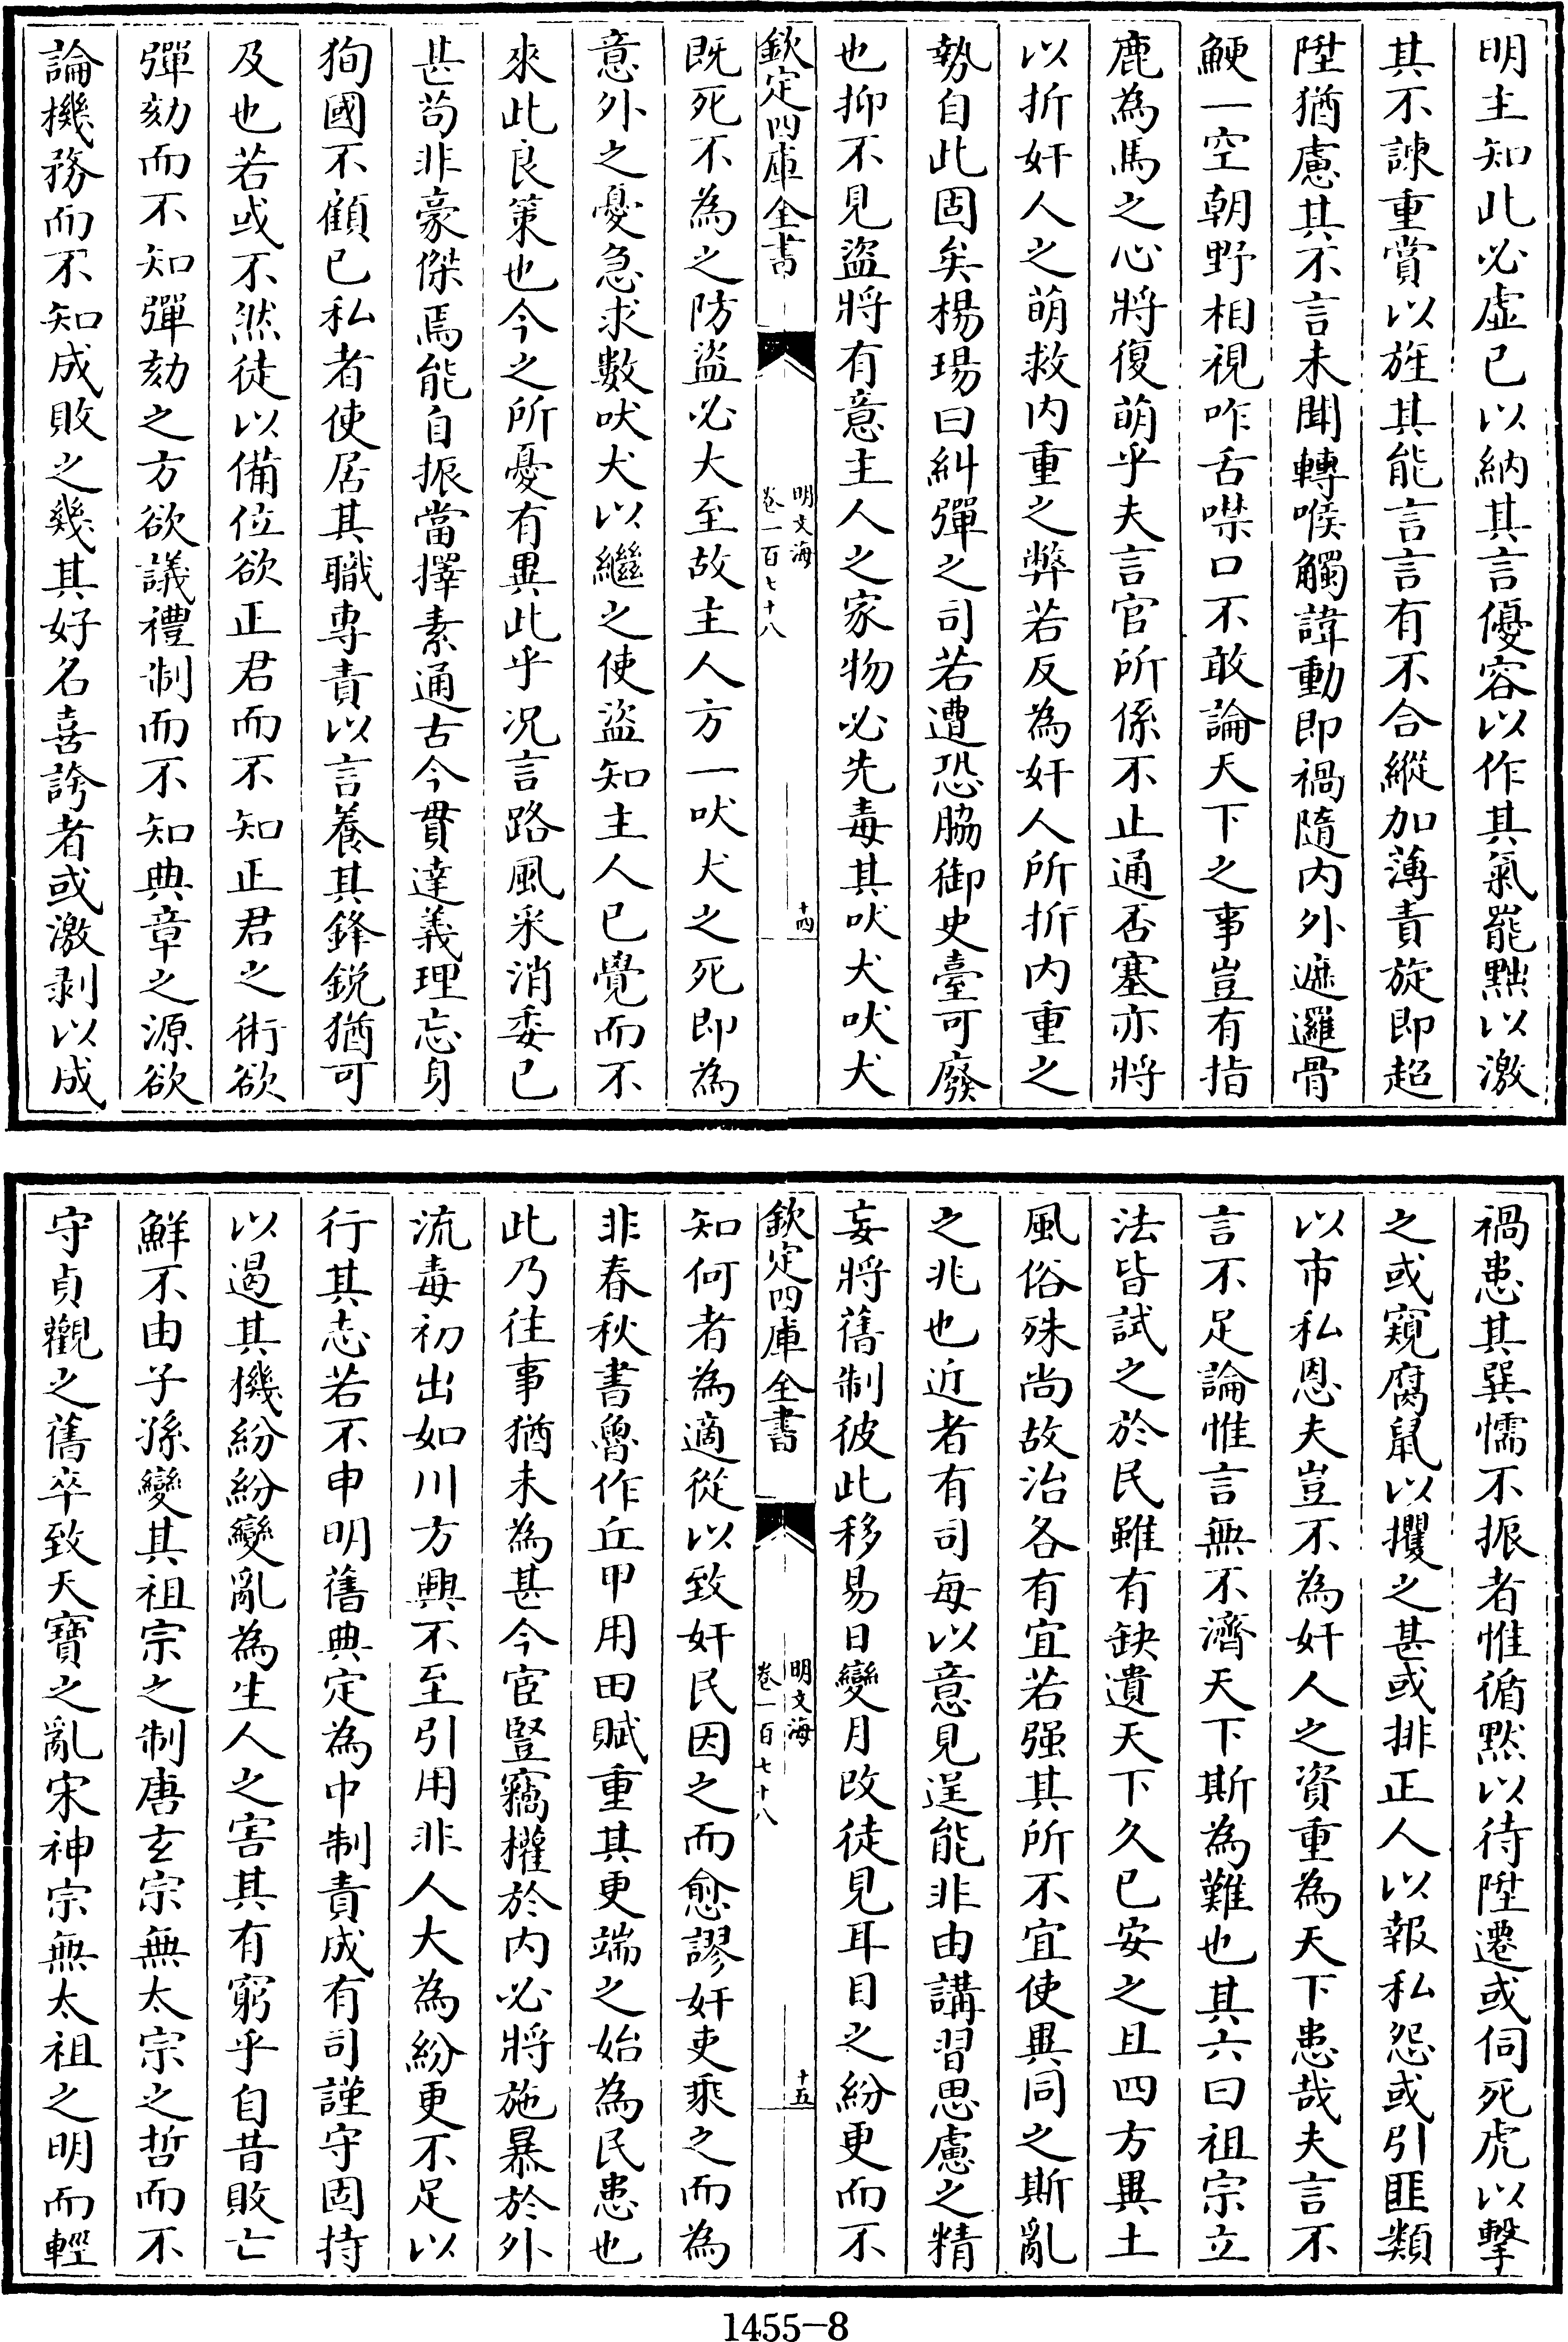 明主知此必虛已以納其言優容以作其氣罷黜以激
其不諫重賞以旌其能言言有不合縱加薄責旋即超
陞猶慮其不言未聞轉喉觸諱動即禍隨内外遮邏骨
鯁一空朝野相視咋舌噤口不敢論天下之事豈有指
鹿為馬之心將復萌乎夫言官所係不止通否塞亦將
以折奸人之萌救内重之弊若反為奸人所折内重之
勢自此固矣楊瑒曰糾彈之司若遭恐脇御史臺可廢
也抑不見盜將有意主人之家物必先毒其吠犬吠犬
欽定四庫全書
明文海
卷一百七十八
十四
既死不為之防盜必大至故主人方一吠犬之死即為
意外之憂急求數吠犬以繼之使盜知主人已覺而不
來此良策也今之所憂有異此乎况言路風采消委已
甚苟非豪傑焉能自振當擇素通古今貫達義理忘身
狥國不顧已私者使居其職專責以言養其鋒鋭猶可
及也若或不然徒以備位欲正君而不知正君之術欲
彈劾而不知彈劾之方欲議禮制而不知典章之源欲
論機務而不知成敗之幾其好名喜誇者或激剥以成
禍患其巽懦不振者惟循默以待陞遷或伺死虎以擊
之或窺腐鼠以攫之甚或排正人以報私怨或引匪類
以市私恩夫豈不為奸人之資重為天下患哉夫言不
言不足論惟言無不濟天下斯為難也其六曰祖宗立
法皆試之於民雖有缺遺天下久已安之且四方異土
風俗殊尚故治各有宜若强其所不宜使異同之斯亂
之兆也近者有司每以意見逞能非由講習思慮之精
妄將舊制彼此移易日變月改徒見耳目之紛更而不
欽定四庫全書
明文海
卷一百七十八
十五
知何者為適從以致奸民因之而愈謬奸吏乘之而為
非春秋書魯作丘甲用田賦重其更端之始為民患也
此乃往事猶未為甚今宦豎竊權於内必將施暴於外
流毒初出如川方興不至引用非人大為紛更不足以
行其志若不申明舊典定為中制責成有司謹守固持
以遏其機紛紛變亂為生人之害其有窮乎自昔敗亡
鮮不由子孫變其祖宗之制唐玄宗無太宗之哲而不
守貞觀之舊卒致天寶之亂宋神宗無太祖之明而輕
1455-8